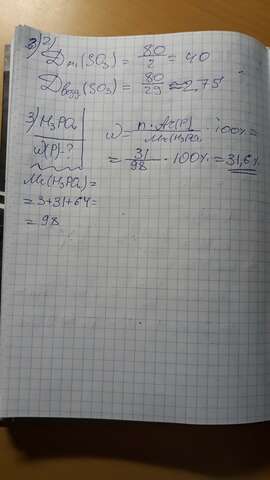 3) 2)
Dm(SO₃) = 80/2 = 40
Dвозд(SO₃) = 80/29 ≈ 2,75
3) H₃PO₄
ω(P) - ?
Mr(H₃PO₄) =
= 3+31+64=
= 98
ω = n · Ar(P) / Mr(H₃PO₄) · 100% =
= 31/98 · 100% = 31,6%